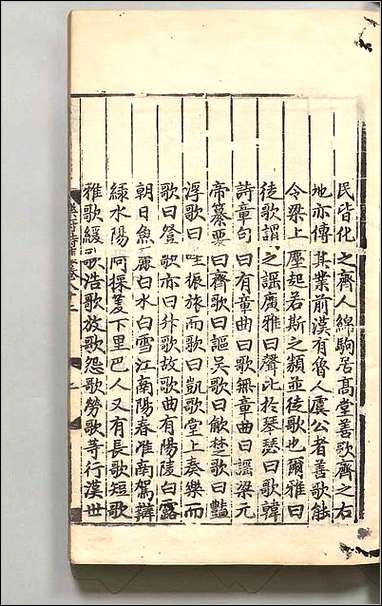 民皆化之齊人綿駒居高堂善歌齊之右
地亦傳其業前漢有魯人虞公者善歌能
令梁上塵起若斯之類並徒歌也爾雅曰
徒歌謂之謡廣雅曰聲比於琴瑟曰歌韓
詩章句曰有章曲曰歌無章曲曰謡梁元
帝纂要曰齊歌曰謳吴歌曰歈楚歌曰豔
浮歌曰哇振旅而歌曰凱歌堂上奏樂而
歌曰登歌亦曰升歌故歌曲有陽陵白露
朝日魚麗白水白雪江南陽春淮南駕辯
緑水陽阿採菱下里巴人又有長歌短歌
雅歌緩歌浩歌放歌怨歌勞歌等行漢世